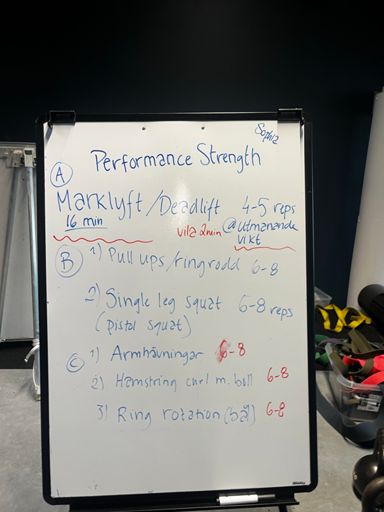 Sophia
Performance Strength
A
Marklyft / Deadlift 4-5 reps
16 min vila 2min @utmanande
vikt
B 1) Pull ups / ringrodd 6-8
2) Single leg squat 6-8 reps
(pistol squat)
C 1) Armhävningar 6-8
2) Hamstring curl m. boll 6-8
3) Ring rotation (bål) 6-8